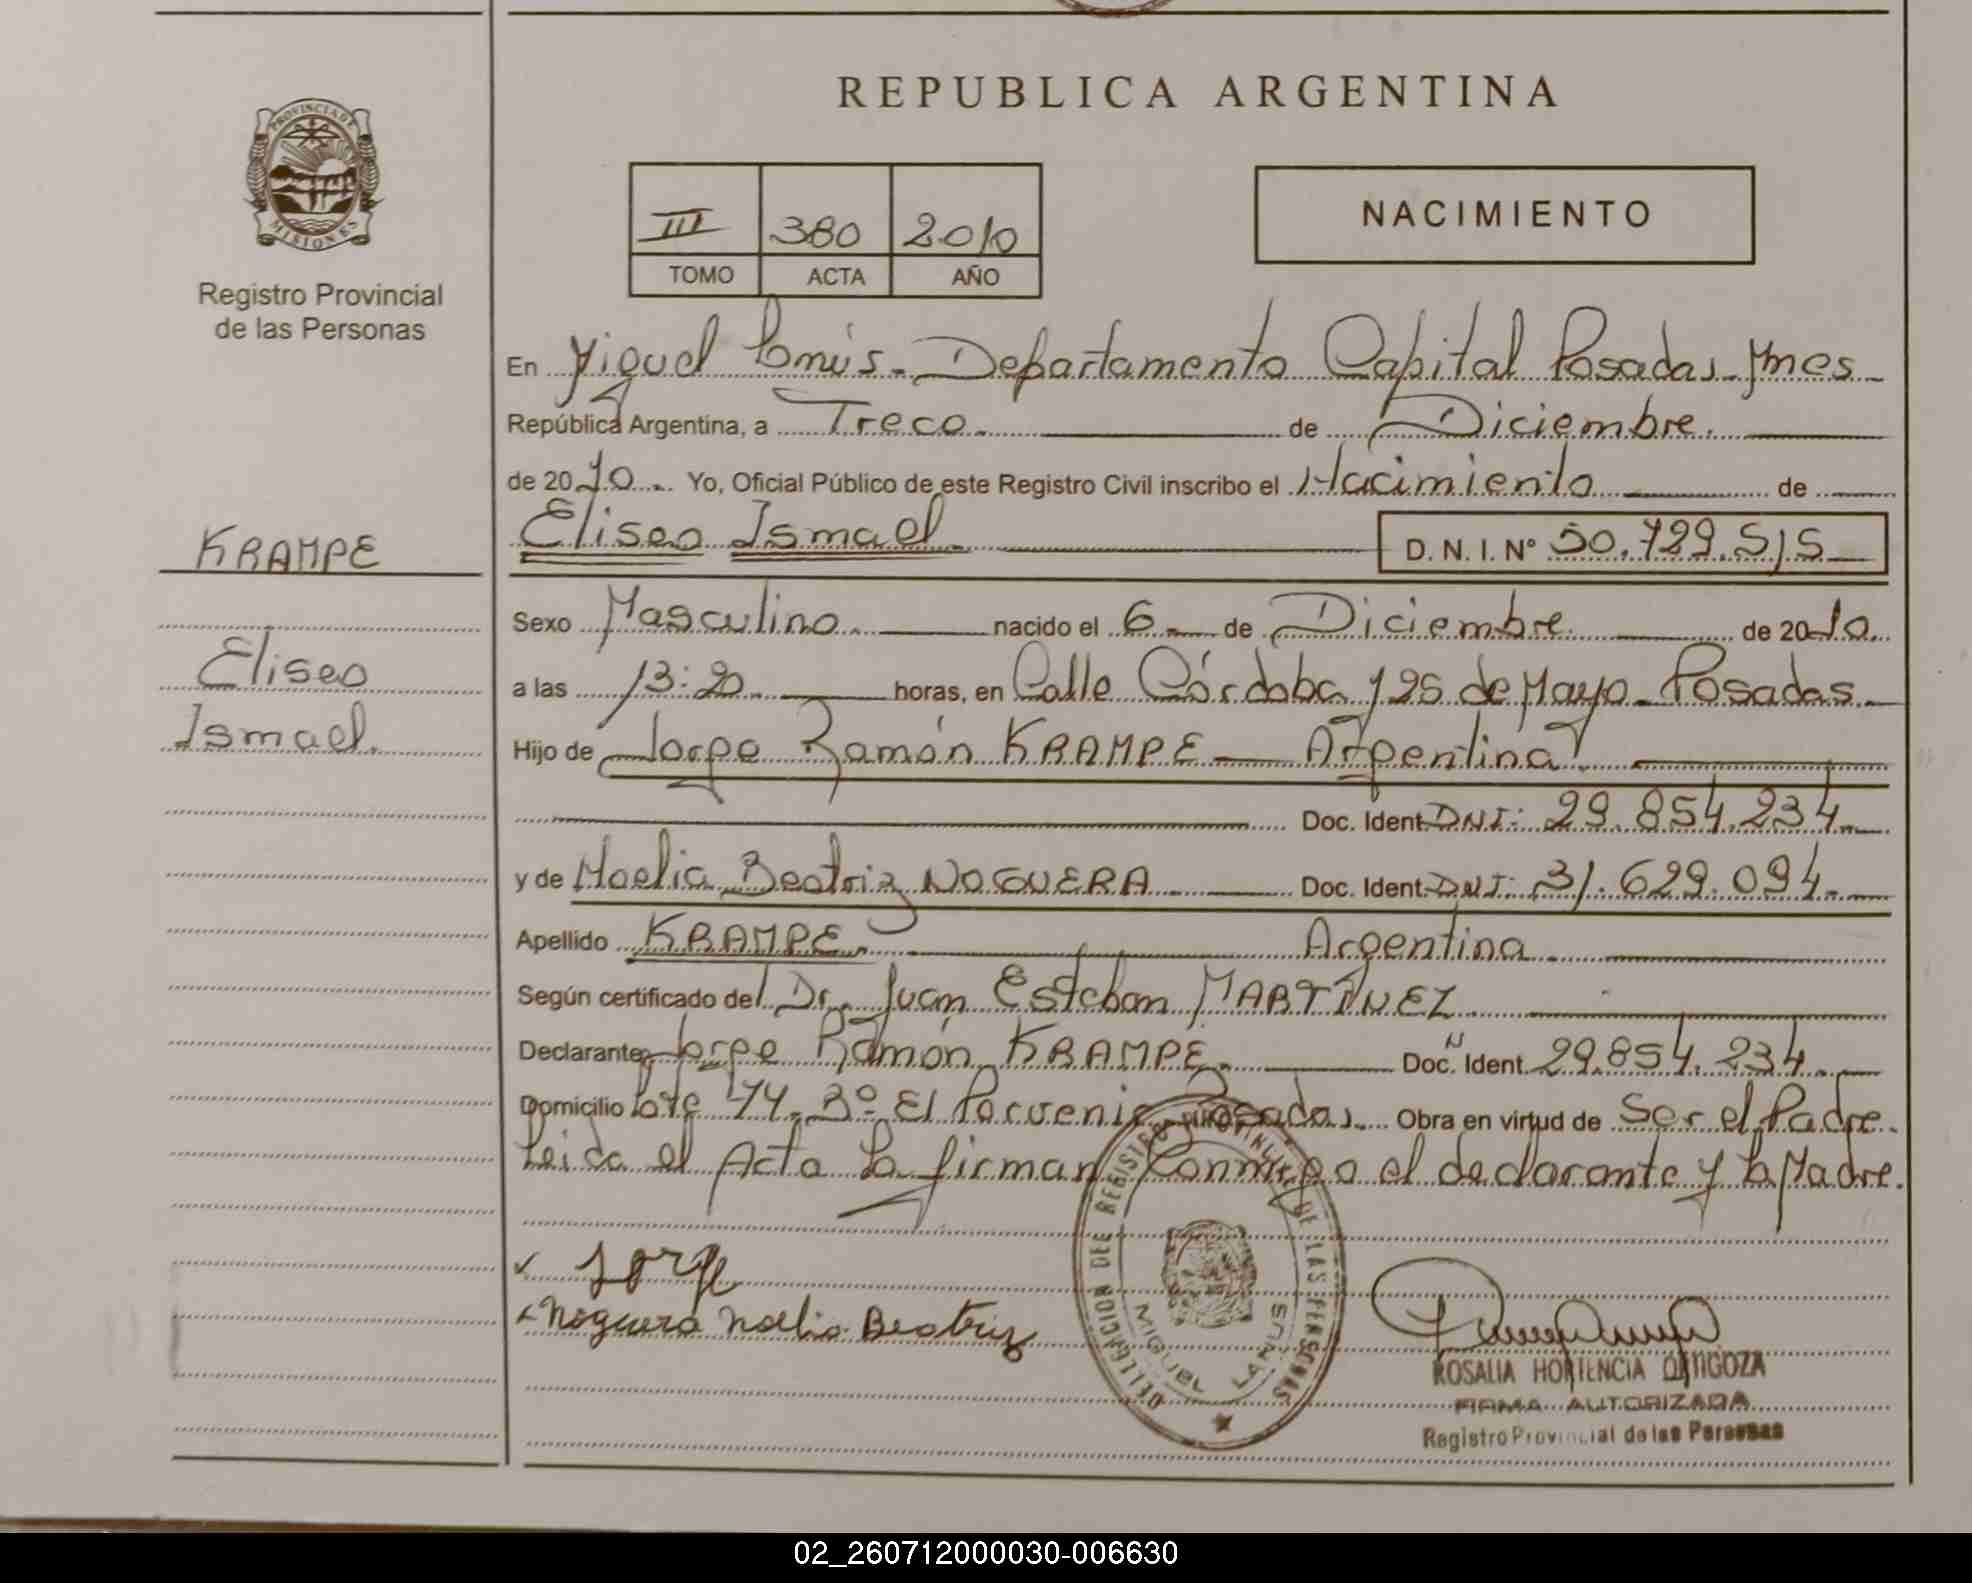 REPUBLICA ARGENTINA
PROVINCIA DE MISIONES
III 380 2010
TOMO ACTA AÑO
NACIMIENTO
Registro Provincial
de las Personas
En Miguel Lanús - Departamento Capital Posadas - Mnes
República Argentina, a Trece de Diciembre.
de 2010 Yo, Oficial Público de este Registro Civil inscribo el Nacimiento de
Eliseo Ismael. D. N. I. Nº 50.729.515
KRAMPE
Eliseo
Ismael.
Sexo Masculino. nacido el 6 de Diciembre. de 2010.
a las 13:20 horas, en Calle Córdoba y 25 de Mayo - Posadas.
Hijo de Jorge Ramón KRAMPE - Argentina
Doc. Ident. DNI: 29.854.234
y de Noelia Beatriz NOGUERA Doc. Ident. DNI: 31.629.094.
Apellido KRAMPE. Argentina
Según certificado del Dr. Juan Esteban MARTÍNEZ
Declarante Jorge Ramón KRAMPE. Doc. Ident. 29.854.234.
Domicilio Lote 74. Bº El Porvenir Posadas. Obra en virtud de Ser el Padre.
Leida el Acta la firman Conmigo el declarante y la Madre.
Jorge
Noguera Noelia Beatriz
DELEGACION DEL REGISTRO PROVINCIAL DE LAS PERSONAS
MIGUEL LANUS
ROSALIA HORTENCIA
FIRMA AUTORIZADA
Registro Provincial de las Personas
02_260712000030-006630